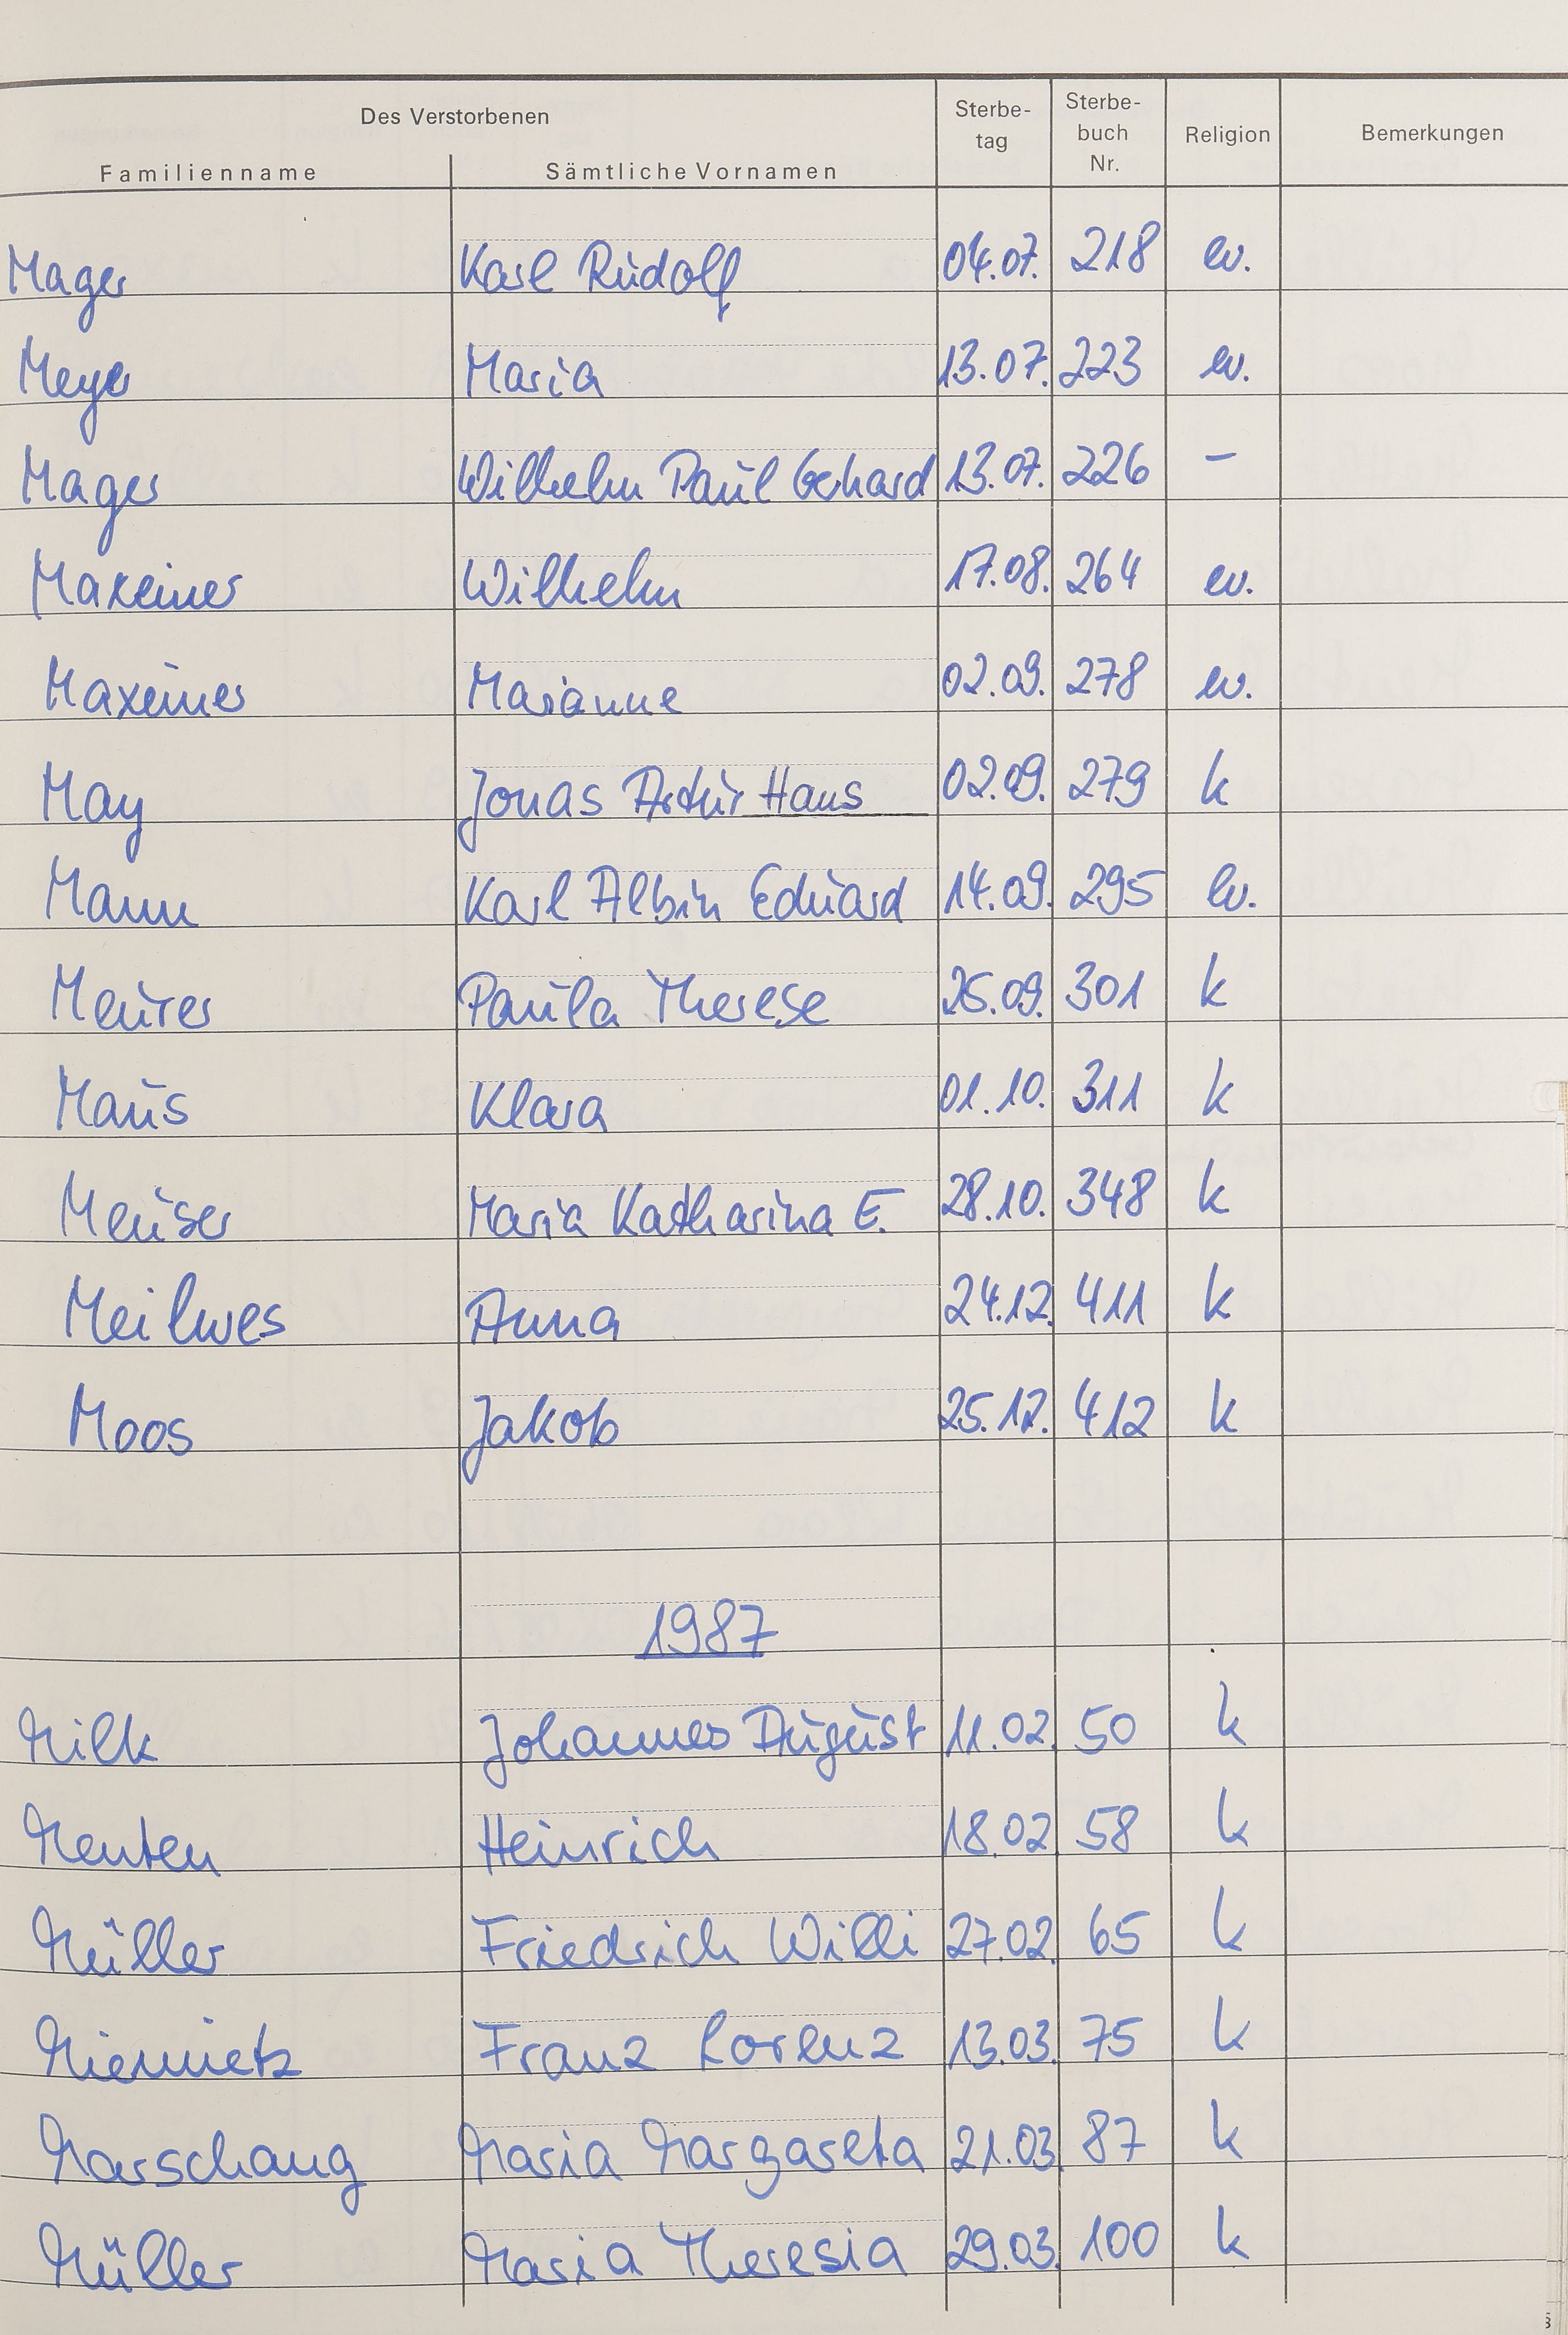 Des Verstorbenen
Familienname Sämtliche Vornamen Sterbe-tag Sterbe-buch Nr. Religion Bemerkungen
Mager Karl Rudolf 04.07. 218 ev.
Meyer Maria 13.07. 223 ev.
Mager Wilhelm Paul Gerhard 13.07. 226 –
Maxeiner Wilhelm 17.08. 264 ev.
Maxeiner Marianne 02.09. 278 ev.
May Jonas Artur Hans 02.09. 279 k
Mann Karl Albin Eduard 14.09. 295 ev.
Meurer Paula Therese 25.09. 301 k
Maus Klara 01.10. 311 k
Meuser Maria Katharina E. 28.10. 348 k
Meilwes Anna 24.12. 411 k
Moos Jakob 25.12. 412 k
1987
Milk Johannes August 11.02. 50 k
Menten Heinrich 18.02 58 k
Müller Friedrich Willi 27.02. 65 k
Miemietz Franz Lorenz 13.03. 75 k
Marschang Maria Margareta 21.03. 87 k
Müller Maria Theresia 29.03. 100 k